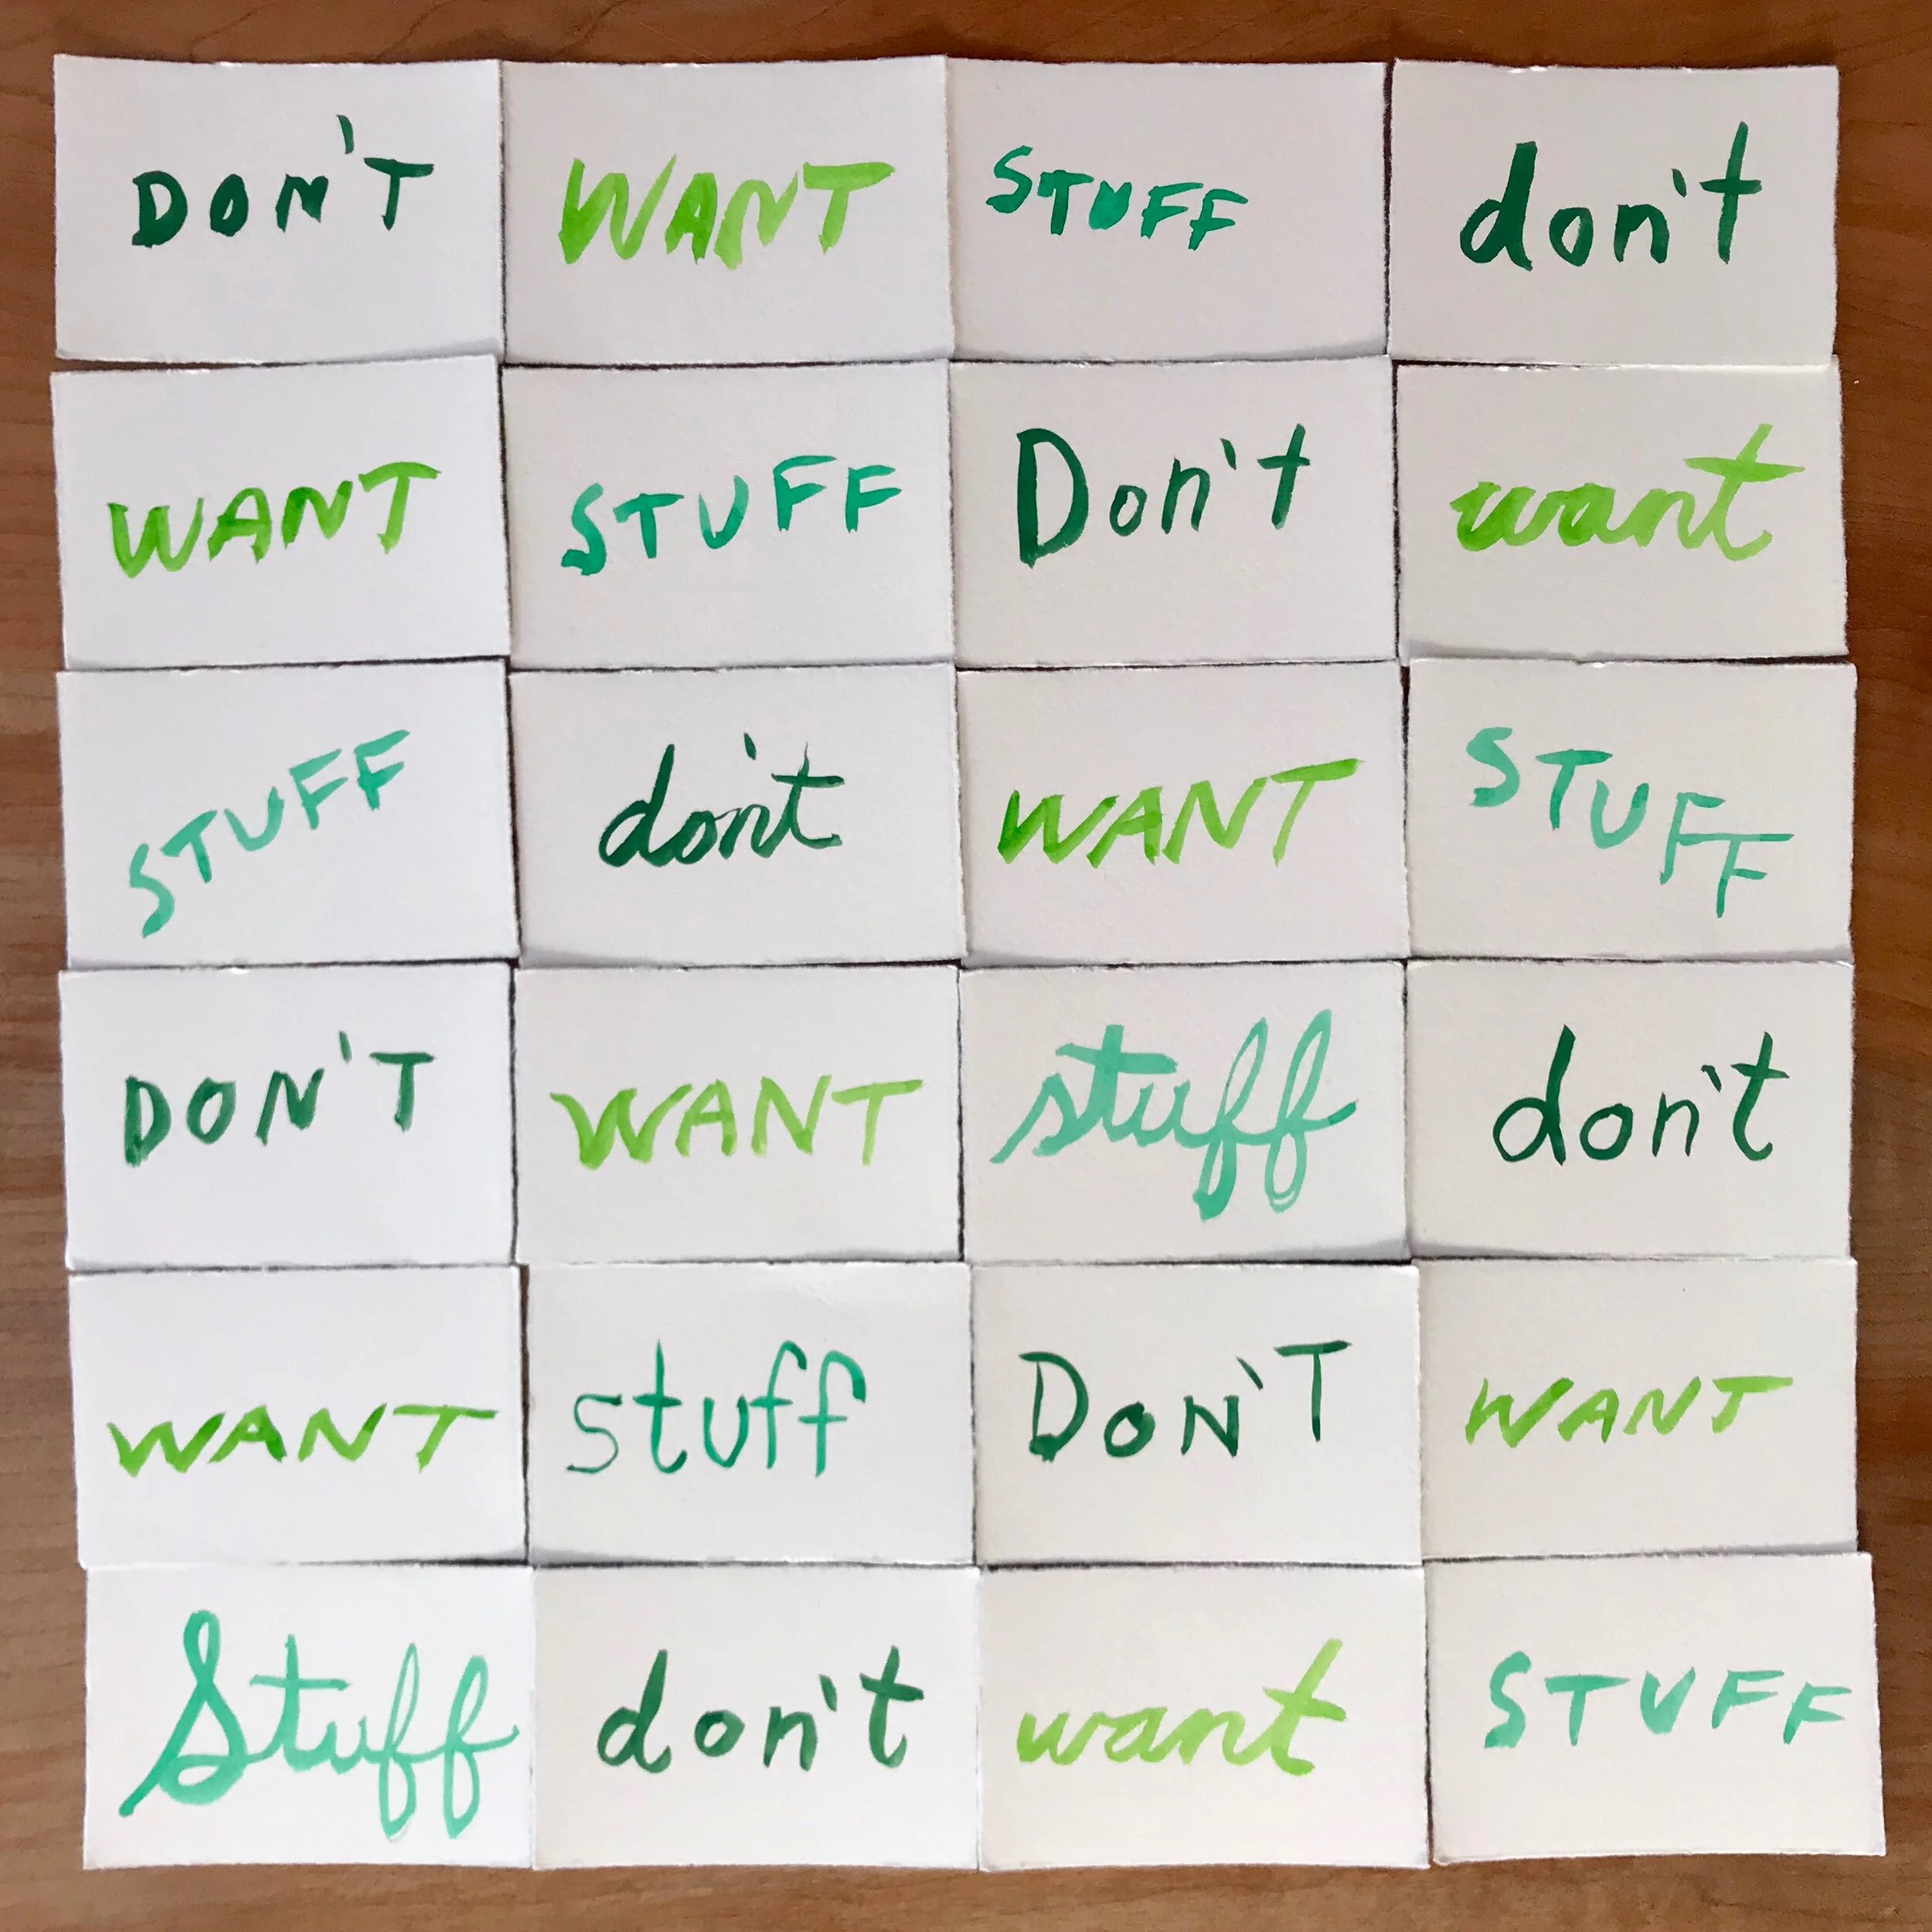 DON'T WANT STUFF don't
WANT STUFF Don't want
STUFF don't WANT STUFF
DON'T WANT stuff don't
WANT stuff DON'T WANT
Stuff don't want STUFF